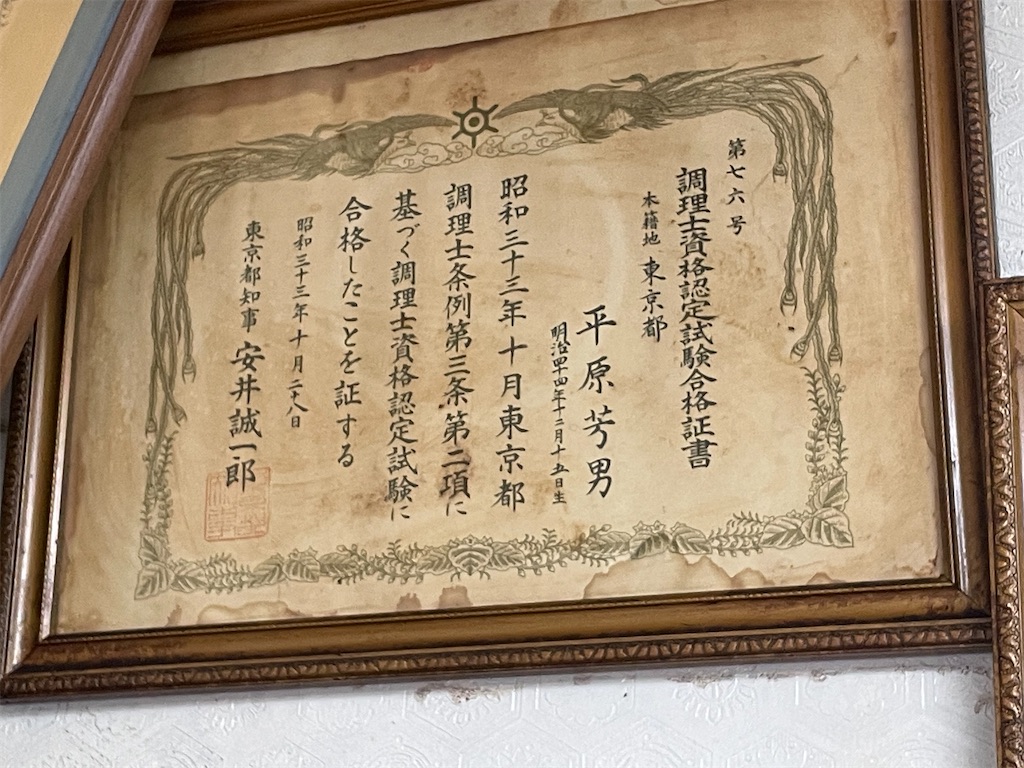 第七六号
調理士資格認定試験合格証書
本籍地 東京都
平原芳男
明治四十四年十二月十五日生
昭和三十三年十月東京都
調理士条例第三条第二項に
基づく調理士資格認定試験に
合格したことを証する
昭和三十三年十月二十八日
東京都知事 安井誠一郎